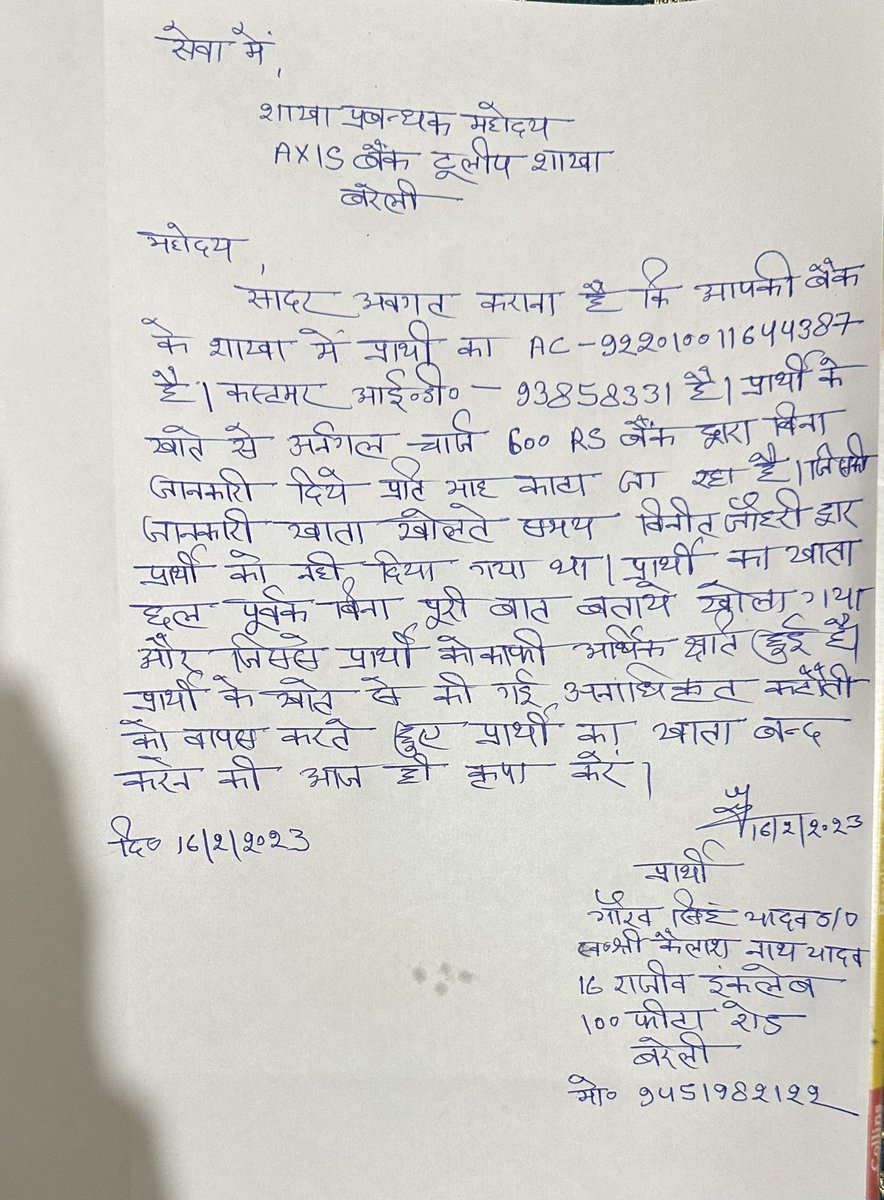 सेवा में,
शाखा प्रबन्धक महोदय
AXIS बैंक टूलीप शाखा
बरेली
महोदय,
सादर अवगत कराना है कि आपकी बैंक
के शाखा में प्रार्थी का AC-922010011644387
है। कस्टमर आई०डी० - 93858331 है। प्रार्थी के
खाते से अर्नगल चार्ज 600 RS बैंक द्वारा बिना
जानकारी दिये प्रति माह काटा जा रहा है। जिसकी
जानकारी खाता खोलते समय विनीत जौहरी द्वारा
प्रार्थी को नही दिया गया था। प्रार्थी का खाता
छल पूर्वक बिना पूरी बात बताये खोला गया
और जिससे प्रार्थी को काफी आर्थिक क्षति हुई है।
प्रार्थी के खाते से की गई अनाधिकृत कटौती
को वापस करते हुए प्रार्थी का खाता बन्द
करने की आज ही कृपा करें।
16/2/2023
दि० 16/2/2023
प्रार्थी
गौरव सिंह यादव S/O
स्व०श्री कैलाश नाथ यादव
16 राजीव इंकलेब
100 फीटा रोड
बरेली
मो० 9451982122
Collins